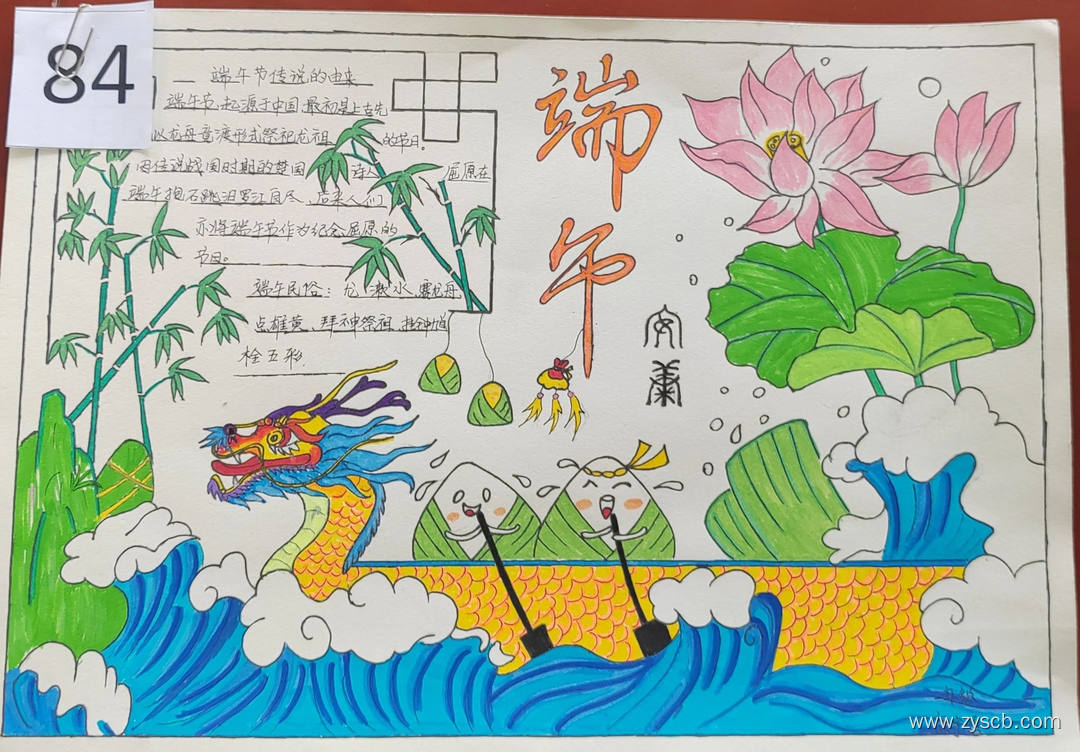 84
端午节传说的由来
端午节,起源于中国,最初是上古先
以龙舟竞渡形式祭祀龙祖 的节日。
因传说战国时期的楚国 诗人 屈原在
端午抱石跳汨罗江自尽,后来人们
亦将端午节作为纪念屈原的
节日。
端午民俗: 水、赛龙舟
点雄黄、拜神祭祖
栓五彩
端午
安康
www.zyscb.com